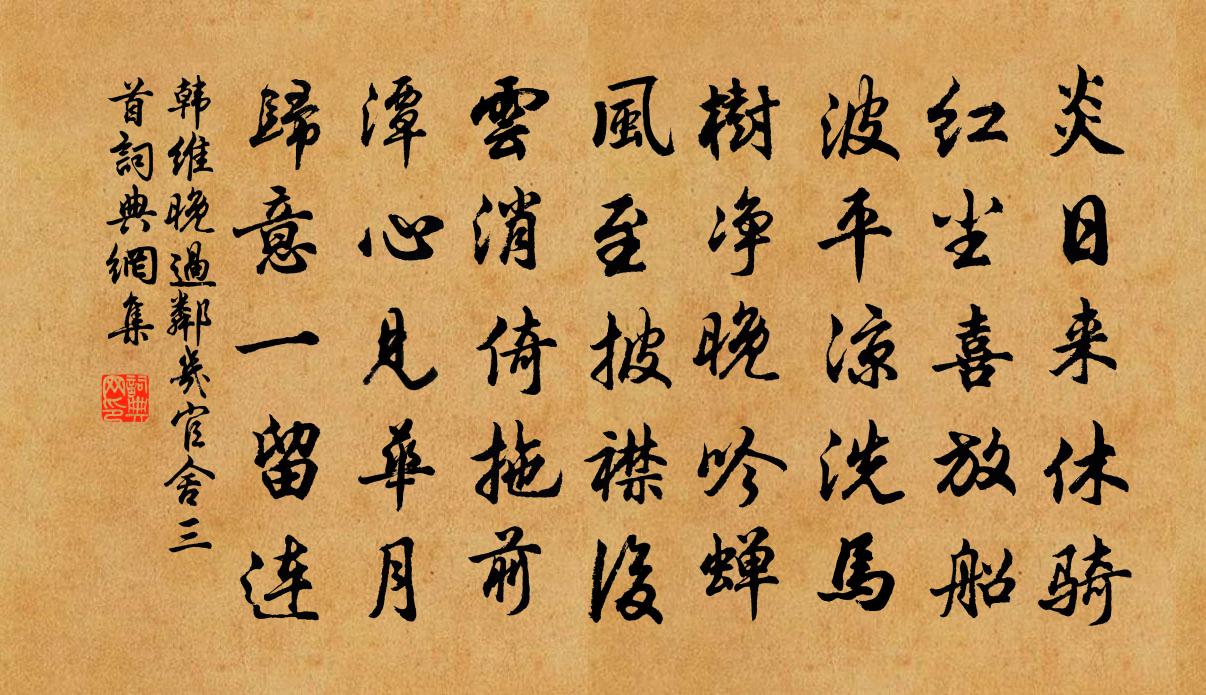 炎日来休骑
红尘喜放船
波平凉洗馬
樹净晚吟蝉
風至披襟後
雲消倚拖前
潭心見華月
歸意一留連
韩維晚過鄰幾官舍三
首詞典網集
詞典网印